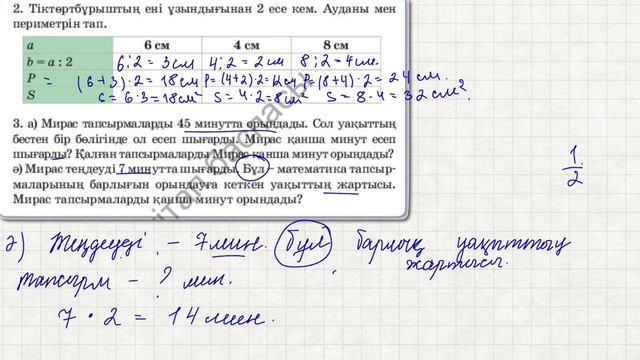 2. Тіктөртбұрыштың ені ұзындығынан 2 есе кем. Ауданы мен
периметрін тап.
a 6 см 4 см 8 см
b = a : 2 6:2 = 3 см 4:2 = 2 см 8:2 = 4 см.
P = (6+3)·2 = 18 см P = (4+2)·2 = 12 см P = (8+4)·2 = 24 см.
S S = 6·3 = 18 см² S = 4·2 = 8 см² S = 8·4 = 32 см².
3. а) Мирас тапсырмаларды 45 минутта орындады. Сол уақыттың
бестен бір бөлігінде ол есеп шығарды. Мирас қанша минут есеп
шығарды? Қалған тапсырмаларды Мирас қанша минут орындады?
ә) Мирас теңдеуді 7 минутта шығарды. Бұл – математика тапсыр-
маларының барлығын орындауға кеткен уақыттың жартысы.
Мирас тапсырмаларды қанша минут орындады?
1/2
ә) Теңдеуді – 7 мин. бұл барлық уақыттың
жартысы.
тапсырм – ? мин.
7 · 2 = 14 мин.